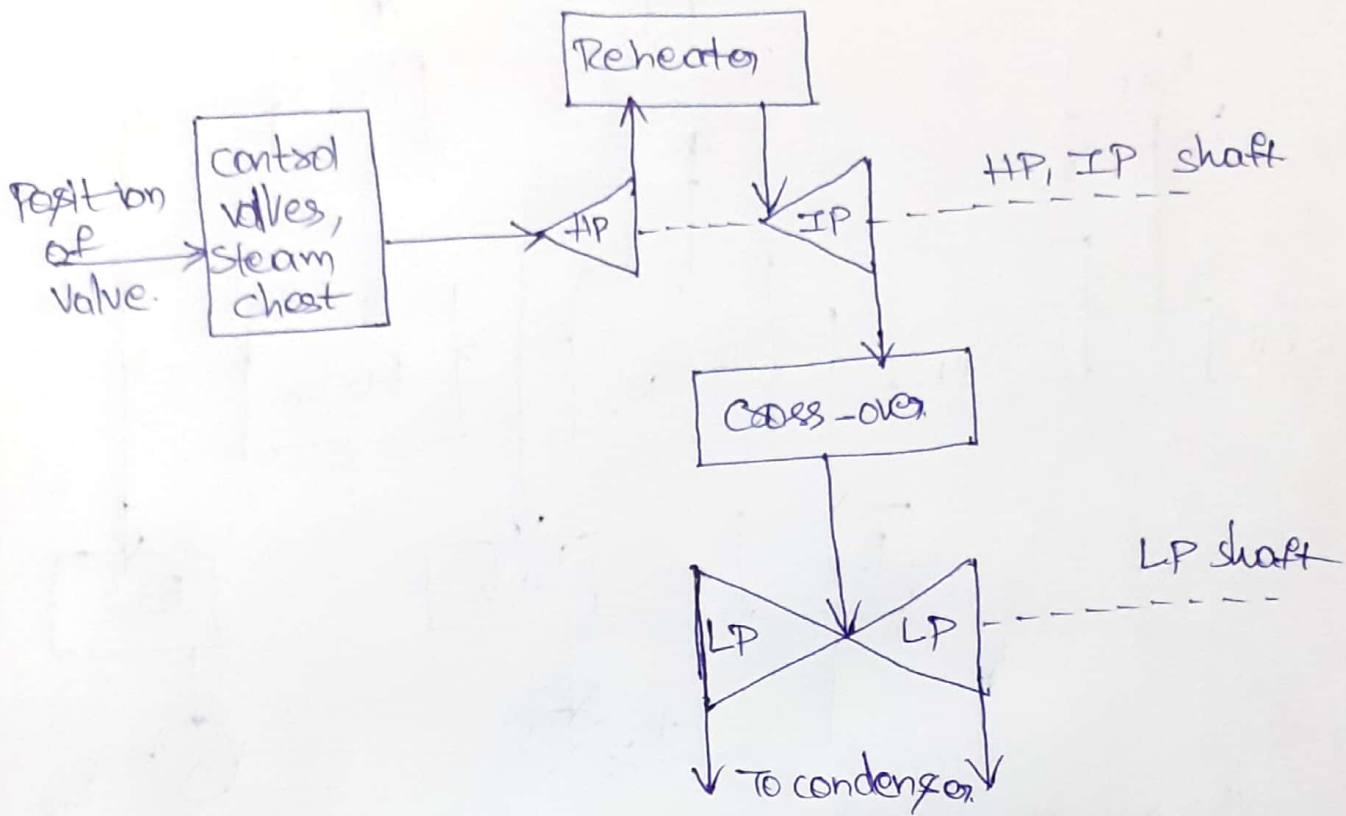 Reheater
Position
of
value.
control
valves,
steam
chest
HP
IP
HP, IP shaft
Cross-over
LP
LP
LP shaft
To condenser